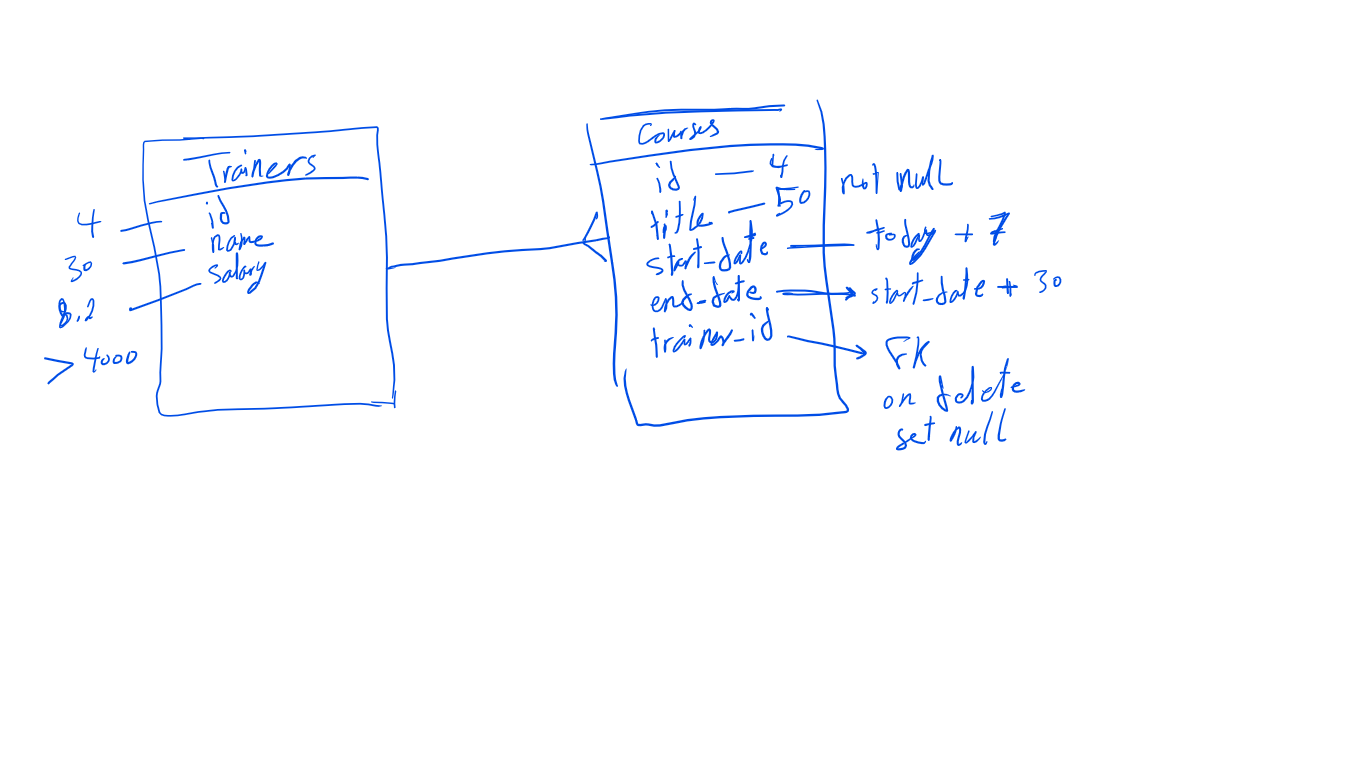 Trainers
4 id
30 name
8.2 salary
> 4000
Courses
id — 4
title — 50 not null
start_date — today + 7
end_date → start_date + 30
trainer_id → FK
on delete
set null